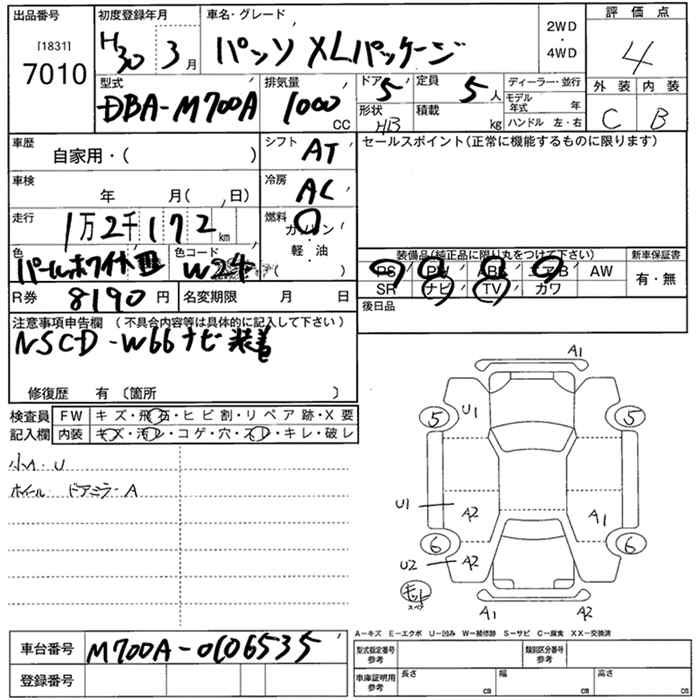 出品番号
[1831]
7010
初度登録年月
H30 3月
車名・グレード
パッソ XLパッケージ
2WD
・
4WD
評価点
4
外装 内装
C B
型式
DBA-M700A
排気量
1000
CC
ドア 5
形状 H/B
定員 5人
積載 kg
ディーラー・並行
モデル年式 年
ハンドル 左・右
車歴
自家用・( )
シフト AT
セールスポイント(正常に機能するものに限ります)
車検
年 月( 、日)
冷房 AC
走行
1万2千172km
燃料
ガソリン
軽・油
( )
色
パールホワイトⅢ
色コード
W24
装備品(純正品に限り丸をつけて下さい)
PS PW ABS エアB AW
SR ナビ TV カワ
新車保証書
有・無
R券 8190円
名変期限 月 日
後日品
注意事項申告欄 (不具合内容等は具体的に記入して下さい)
NSCD-W66ナビ装着
修復歴 有 〔箇所 〕
検査員
記入欄
FW キズ・飛石・ヒビ割・リペア跡・X要
内装 キズ・汚レ・コゲ・穴・スレ・キレ・破レ
小A・U
ホイール・ドアミラーA
A1
5 U1 5
U1 A2 A1
6 6
U2 A2
キット
スペア
A1 A2
A−キズ E−エクボ U−凹み W−補修跡 S−サビ C−腐食 XX−交換済
車台番号 M700A-0006535
登録番号
型式指定番号
参考
類別区分番号
参考
車庫証明用
参考
長さ cm 幅 cm 高さ cm